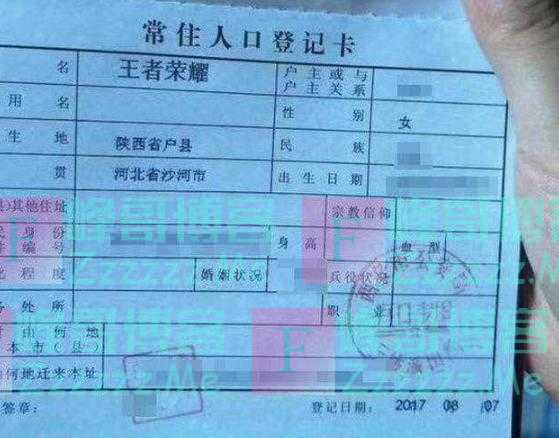 常住人口登记卡
名 王者荣耀 户主或与户主关系
用名 性别 女
生地 陕西省户县 民族
贯 河北省沙河市 出生日期
)其他住址 宗教信仰
民身份
件编号 身高 血型
化程度 婚姻状况 兵役状况
务处所 职业
由何地
本市(县)
何地迁来本址
签章: 登记日期: 2017 08 07
峰哥博客
Zzzzzz.Me
F
峰哥博客
Zzzzzz.Me
F
峰哥博客
Zzzzzz.Me
F
峰哥博客
Zzzzzz.Me